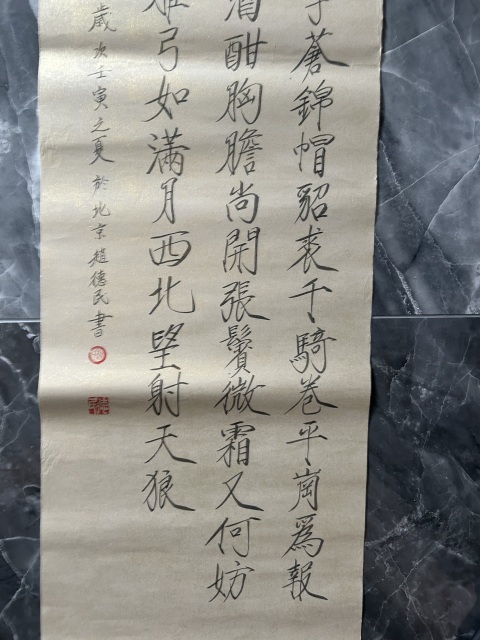 蒼錦帽貂裘千騎卷平崗爲報
酣胸膽尚開張鬢微霜又何妨
弓如滿月西北望射天狼
歲次壬寅之夏於北京趙德民書